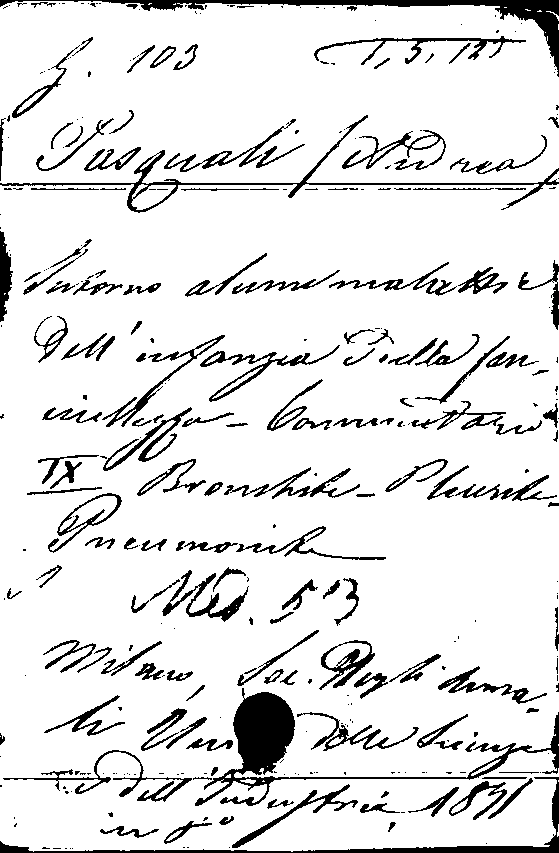 G. 103 T, 5, 125
Pasquali (Andrea)
Intorno alcune malattie
dell'infanzia e della fan-
ciullezza - Commentario
IX Bronchite - Pleurite -
Pneumonite
Med. 53
Milano, Soc. degli Anna-
li Un delle Scienze
e dell'Industria, 18
in 8°